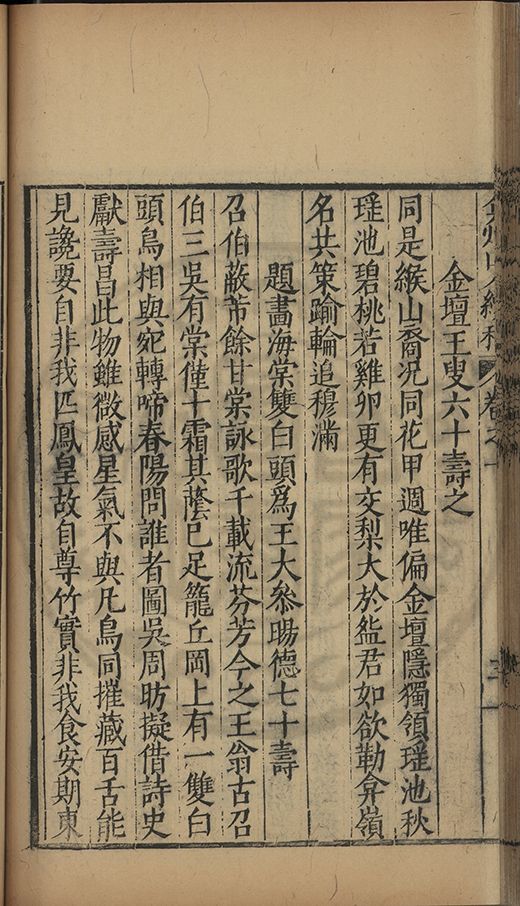 弇州山人續稿 卷之十
金壇王叟六十壽之
同是緱山裔况同花甲週唯偏金壇隱獨領瑶池秋
瑶池碧桃若雞卵更有交梨大於㿻君如欲勒弇嶺
名共策踰輪追穆滿
題畫海棠雙白頭爲王大叅暘德七十壽
召伯蔽芾餘甘棠詠歌千載流芬芳今之王翁古召
伯三吳有棠僅十霜其蔭已足籠丘岡上有一雙白
頭鳥相與宛轉啼春陽問誰者圖吳周昉擬借詩史
獻壽昌此物雖微感星氣不與凡鳥同摧藏百舌能
見讒要自非我匹鳳皇故自尊竹實非我食安期東